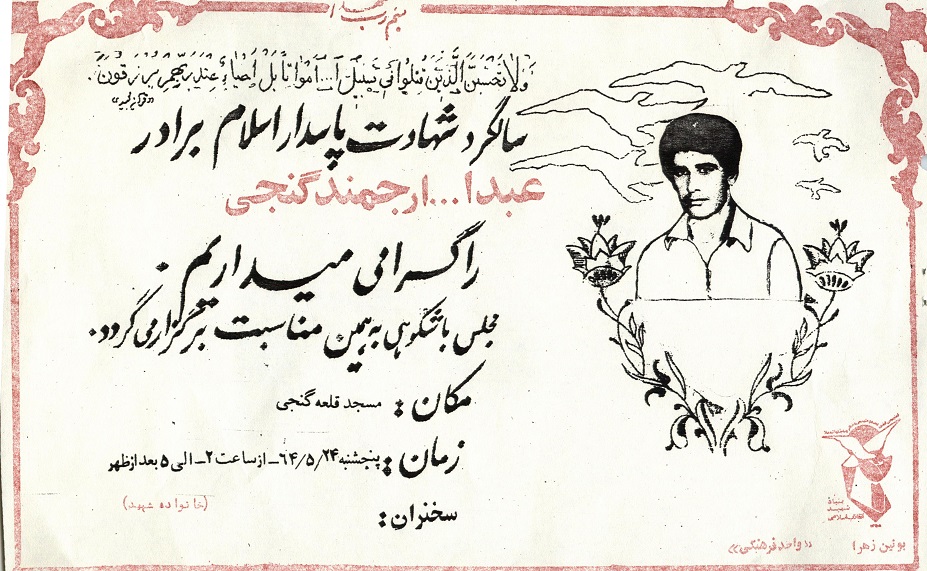 بسم رب الشهداء
وَلَا تَحْسَبَنَّ الَّذِينَ قُتِلُوا فِي سَبِيلِ ا... أَمْوَاتاً بَلْ أَحْيَاءٌ عِنْدَ رَبِّهِمْ يُرْزَقُونَ.
«قرآن مجید»
سالگرد شهادت پاسدار اسلام برادر
عبدا... ارجمند گنجی
را گرامی میداریم.
مجلس باشکوهی به همین مناسبت برگزار می گردد.
مکان: مسجد قلعه گنجی
زمان: پنجشنبه ۶۴/۵/۲۴- از ساعت ۲- الی ۵ بعد از ظهر
سخنران:
(خانواده شهید)
بنیاد
شهید
انقلاب اسلامی
بوئین زهرا «واحد فرهنگی»